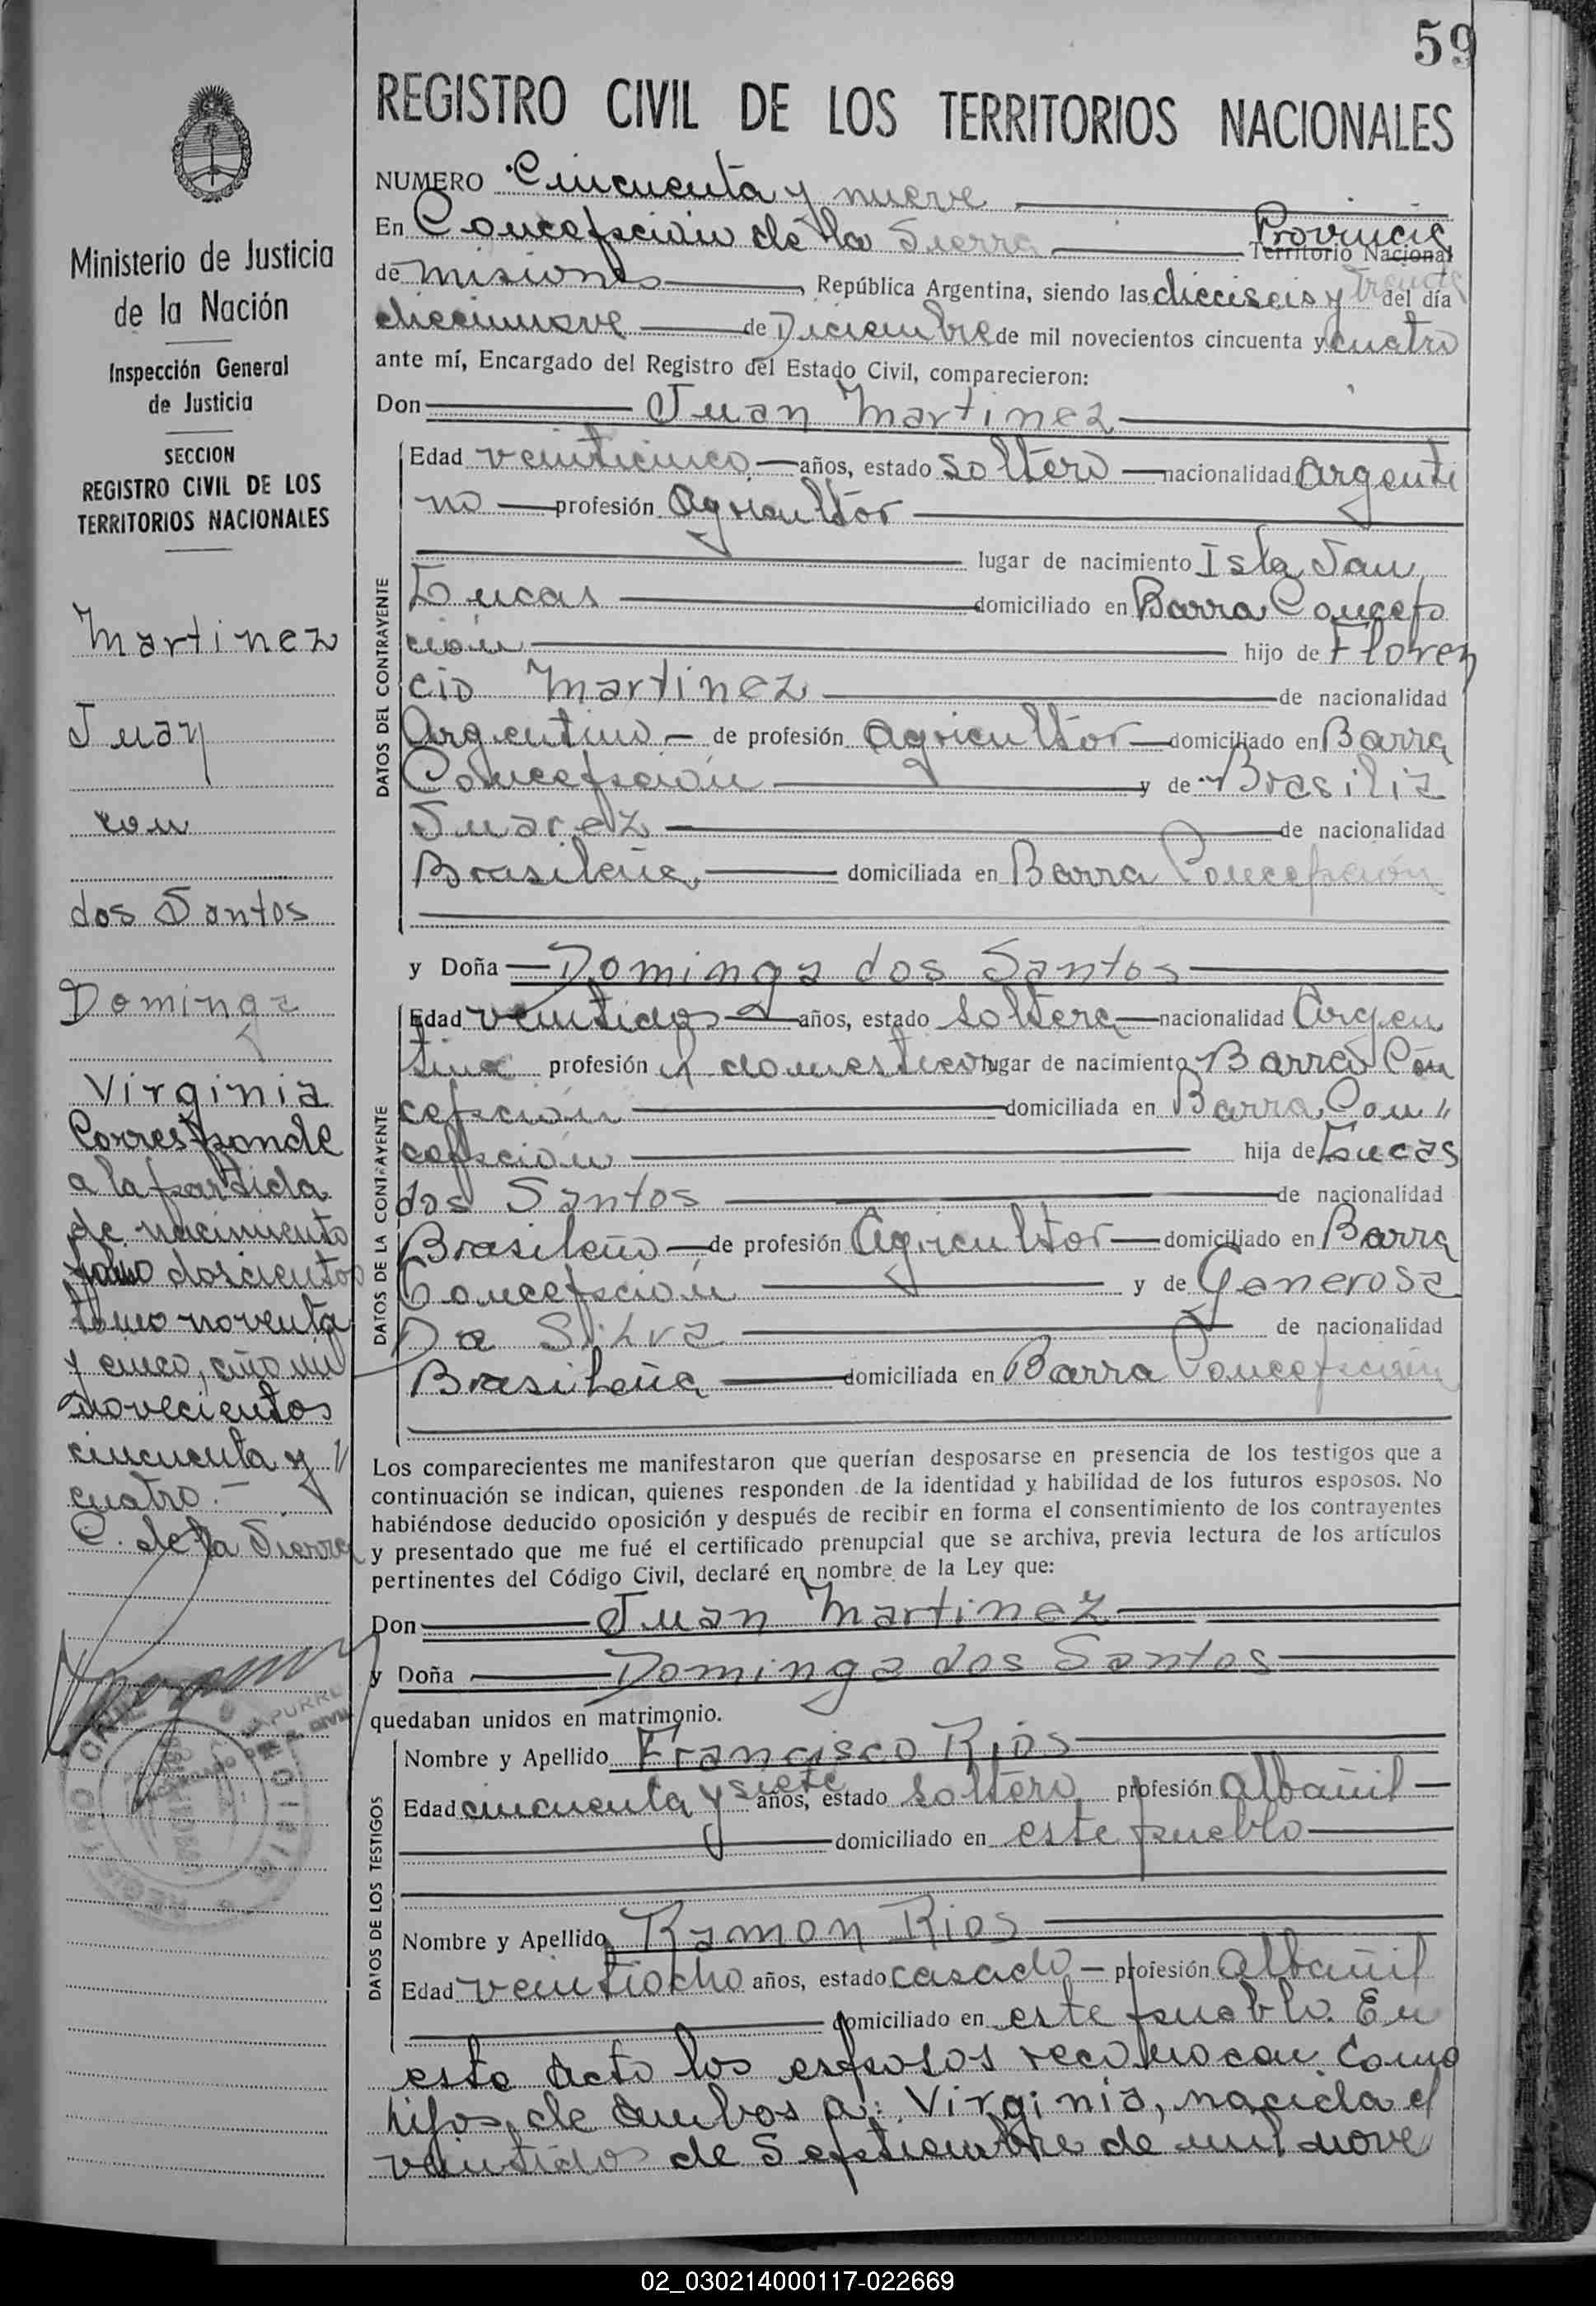 59
REGISTRO CIVIL DE LOS TERRITORIOS NACIONALES
Ministerio de Justicia
de la Nación
Inspección General
de Justicia
SECCION
REGISTRO CIVIL DE LOS
TERRITORIOS NACIONALES
Martinez
Juan
con
dos Santos
Dominga
Virginia
Corresponde
a la partida
de nacimiento
folio doscientos
tomo noventa
y cinco, año mil
novecientos
cincuenta y
cuatro.-
C. de la Sierra
NUMERO Cincuenta y nueve
En Concepción de la Sierra Provincia Territorio Nacional
de Misiones, República Argentina, siendo las dieciseis y treinta del día
diecinueve de Diciembre de mil novecientos cincuenta y cuatro
ante mí, Encargado del Registro del Estado Civil, comparecieron:
Don Juan Martinez
DATOS DEL CONTRAYENTE
Edad veinticinco años, estado soltero nacionalidad argenti
no profesión agricultor
lugar de nacimiento Isla San
Lucas domiciliado en Barra Concep
ción hijo de Floren
cio Martinez de nacionalidad
Argentino - de profesión agricultor domiciliado en Barra
Concepción y de Brasilia
Suarez de nacionalidad
Brasileña domiciliada en Barra Concepción
y Doña Dominga dos Santos
DATOS DE LA CONTRAYENTE
Edad veintidos años, estado soltera nacionalidad Argen
tina profesión q domesticos lugar de nacimiento Barra Con
cepción domiciliada en Barra Con "
cepción hija de Lucas
dos Santos de nacionalidad
Brasileño de profesión Agricultor domiciliado en Barra
Concepción y de Generosa
Da Silva de nacionalidad
Brasileña domiciliada en Barra Concepción
Los comparecientes me manifestaron que querían desposarse en presencia de los testigos que a
continuación se indican, quienes responden de la identidad y habilidad de los futuros esposos. No
habiéndose deducido oposición y después de recibir en forma el consentimiento de los contrayentes
y presentado que me fué el certificado prenupcial que se archiva, previa lectura de los artículos
pertinentes del Código Civil, declaré en nombre de la Ley que:
Don Juan Martinez
y Doña Dominga dos Santos
quedaban unidos en matrimonio.
DATOS DE LOS TESTIGOS
Nombre y Apellido Francisco Rios
Edad cincuenta y siete años, estado soltero profesión albañil
domiciliado en este pueblo
Nombre y Apellido Ramon Rios
Edad veintiocho años, estado casado - profesión albañil
domiciliado en este pueblo. En
este acto los esposos reconocen como
hijos de ambos a: Virginia, nacida el
veintidos de Septiembre de mil nove
02_030214000117-022669